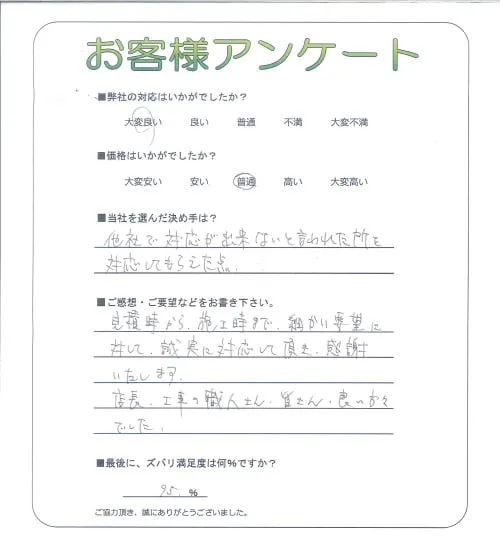 お客様アンケート
■弊社の対応はいかがでしたか？
大変良い 良い 普通 不満 大変不満
■価格はいかがでしたか？
大変安い 安い 普通 高い 大変高い
■当社を選んだ決め手は？
他社で対応が出来ないと言われた所を
対応してもらえた点.
■ご感想・ご要望などをお書き下さい。
見積時から、施工時まで、細かい要望に
対して、誠実に対応して頂き、感謝
いたします.
店長、工事の職人さん、皆さん、良い方々
でした.
■最後に、ズバリ満足度は何%ですか？
95. %
ご協力頂き、誠にありがとうございました。